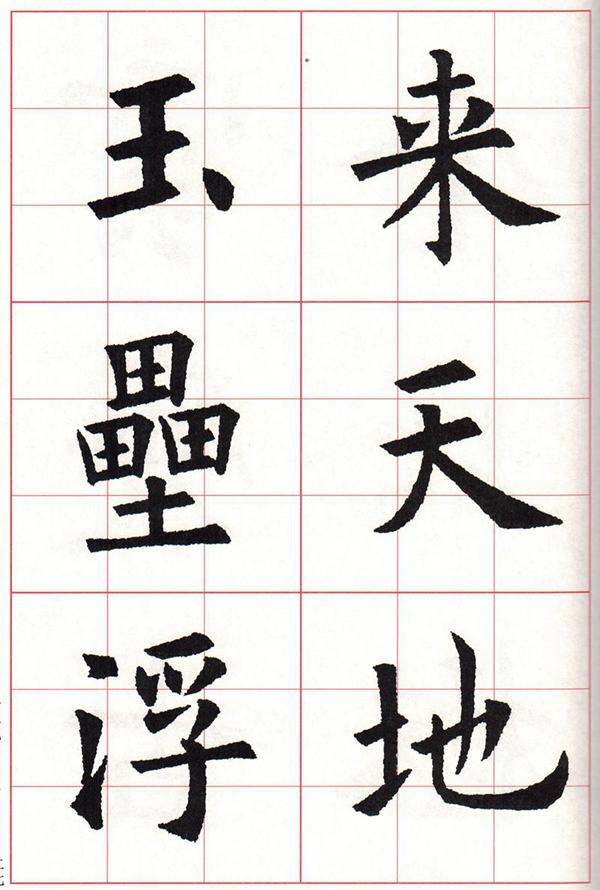 来天地
玉壘浮